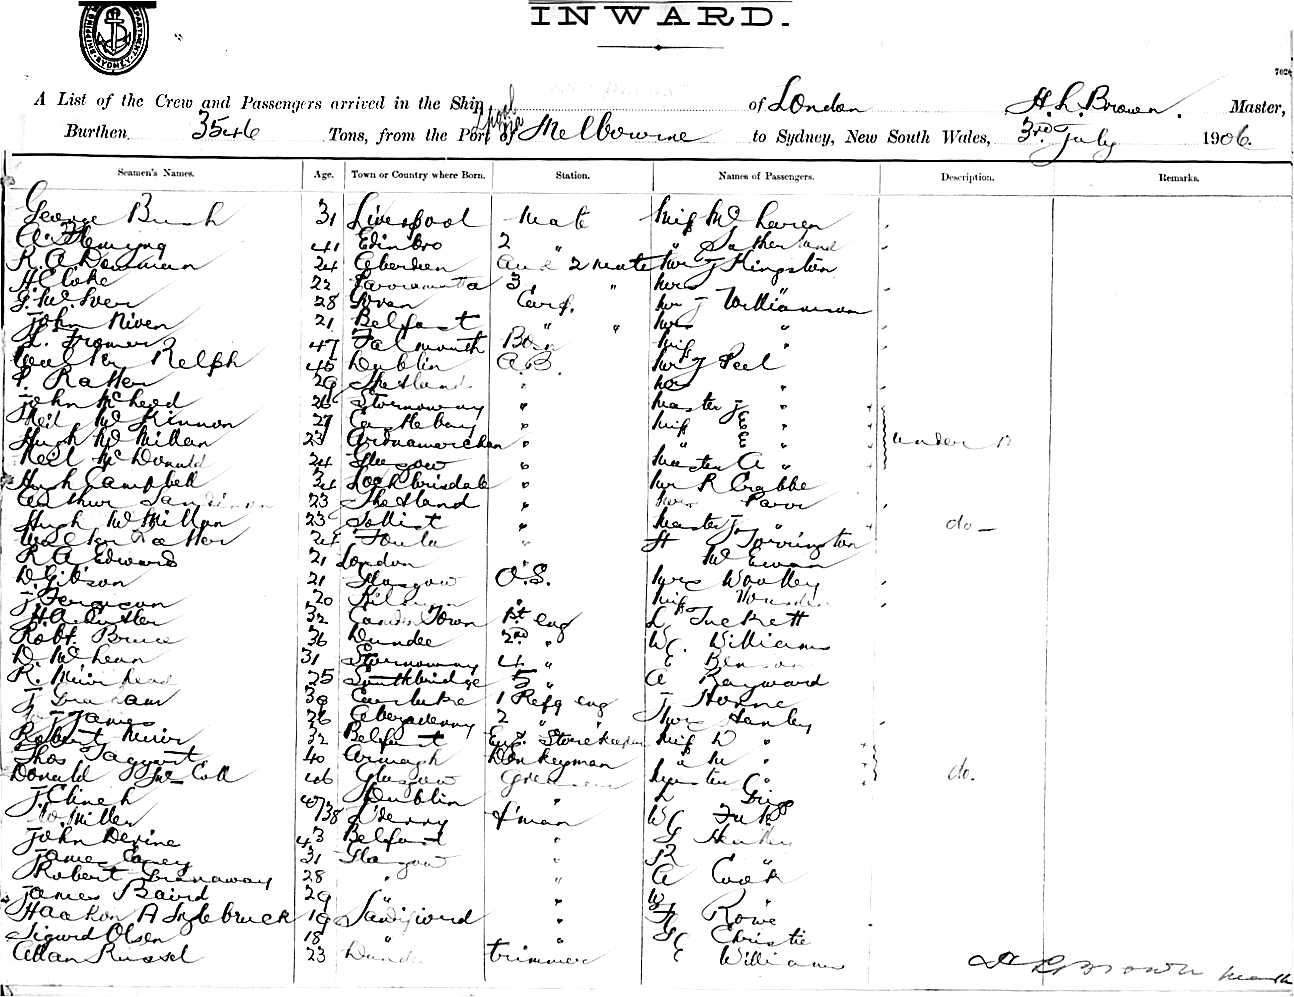 INWARD.
SHIPPING DEPARTMENT SYDNEY
702
A List of the Crew and Passengers arrived in the Ship of London H. L. Brown. Master,
Burthen 3546 Tons, from the Port of Melbourne to Sydney, New South Wales, 3rd July 1906.
Seamen's Names. Age. Town or Country where Born. Station. Names of Passengers. Description. Remarks.
George Bush 31 Liverpool Mate Miss
A. Fleming 41 Edinbro 2 " " Sutherland
R A 24 Aberdeen 2 mate Mr J Kingston
H Cloke 22 Parramatta 3 " Mrs "
G. McIver 28 Govan Carp. Mr J Williamson
John Niven 21 Belfast " " Mrs "
47 Falmouth Bosn Miss "
Walter Ralph 45 Dublin A.B. Mr J Peel
P. Ratter 29 Shetland " Mrs "
John McLeod 26 Stornoway " Master J "
Neil McKinnon 27 Castlebay " Miss E "
Hugh McMillan 23 Ardnamurchan " " E " under 12
Neil McDonald 24 Glasgow " Master A "
Hugh Campbell 34 " Mr R Crabbe
Arthur 23 Shetland " Mrs Parr
Hugh McMillan 23 " Master J " do
Walter Ratter 24 Foula " H Torrington
R A Edward 21 London McEwan
D. Gibson 21 Glasgow O.S. Mrs Woolley
J. Ferguson 20 " Miss
H. A. Cutler 32 Camden Town 1st eng L Tuckett
Robt. Bruce 36 Dundee 2nd " W. Williams
D. McLean 31 Stornoway 4 " E Benson
R. Muirhead 25 Southbridge 5 " A Bayward
J Graham 39 Carluke 1 Refg eng J Horne
James 26 Abergavenny 2 " " Mrs Hanley
Robert Muir 32 Belfast Eng. Storekeeper Miss D "
Thos Taggart 40 Armagh Donkeyman " M "
Donald McColl 46 Glasgow Greaser Master C " do.
J. Clinch 47 Dublin " L
Miller 38 Derry f'man W
John Devine 43 Belfast " G
James Carey 31 Glasgow " R "
Robert 28 " " A Cook
James Baird 29 " " W "
Haakon A 19 Sandfjord " H Rowe
Sigurd Olsen 18 " " G Christie
Allan Russel 23 Dundee trimmer E Williams
H L Brown Master